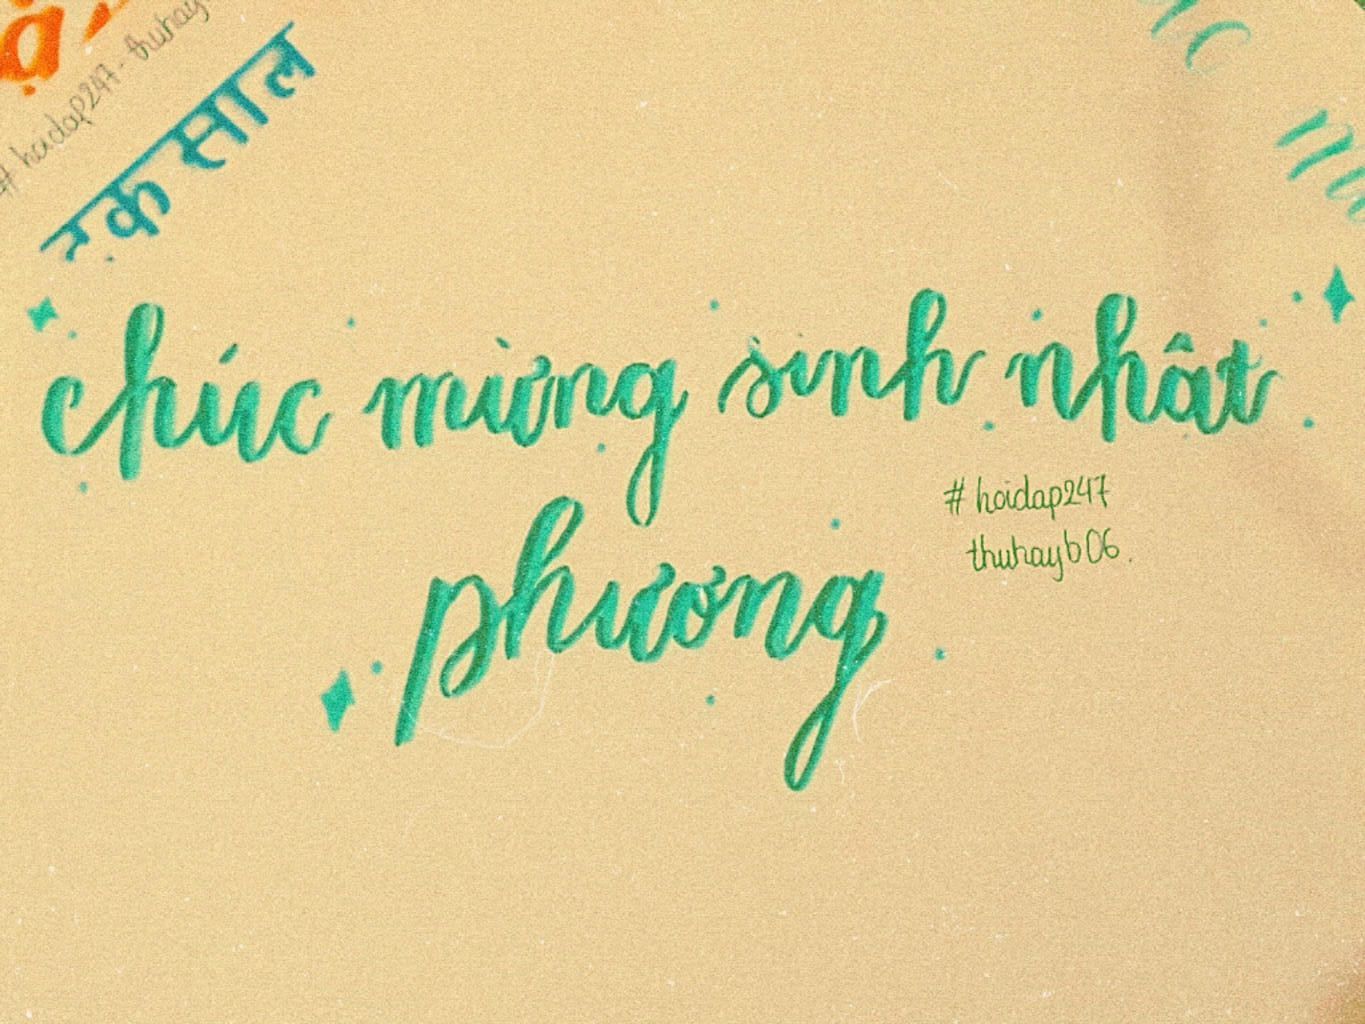 # hoidap247 - thuhay
एक साल
chúc mừng sinh nhật
phương
# hoidap247
thuhayb06.